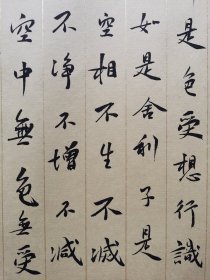 是色受想行識
如是舍利子是
空相不生不滅
不净不增不减
空中無色無受